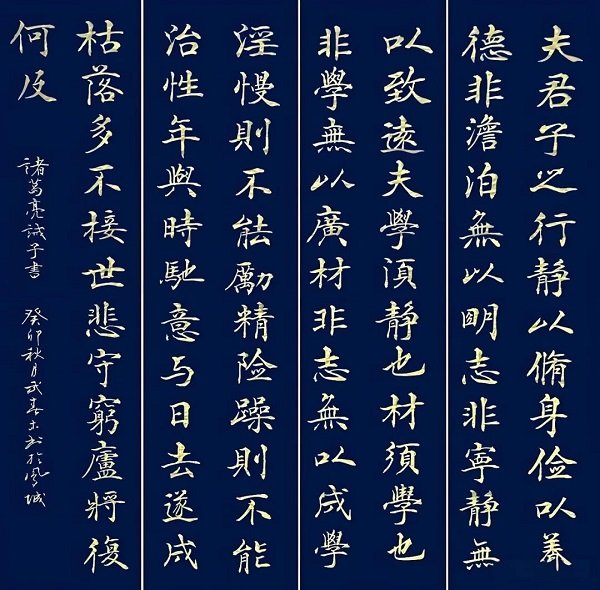 夫君子之行静以脩身俭以養
德非澹泊無以明志非寧静無
以致遠夫學須静也材須學也
非學無以廣材非志無以成學
淫慢則不能勵精险躁則不能
治性年與時馳意与日去遂成
枯落多不接世悲守窮廬將復
何及
諸葛亮誡子書 癸卯秋月武春书於鳳城